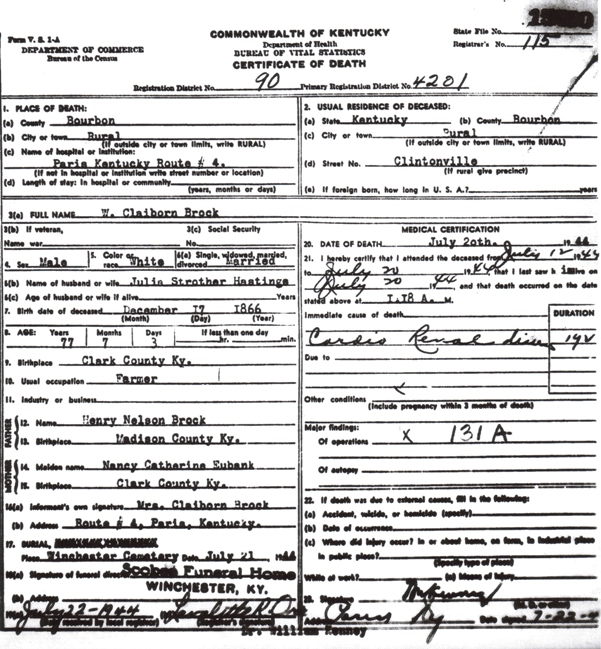 Form V. S. 1-A
DEPARTMENT OF COMMERCE
Bureau of the Census
COMMONWEALTH OF KENTUCKY
Department of Health
BUREAU OF VITAL STATISTICS
CERTIFICATE OF DEATH
State File No.
Registrar's No. 115
Registration District No. 90 Primary Registration District No. 4201
1. PLACE OF DEATH:
(a) County Bourbon
(b) City or town Rural
(If outside city or town limits, write RURAL)
(c) Name of hospital or institution:
Paris Kentucky Route # 4.
(If not in hospital or institution write street number or location)
(d) Length of stay: In hospital or community
(years, months or days)
2. USUAL RESIDENCE OF DECEASED:
(a) State Kentucky (b) County Bourbon
(c) City or town Rural
(If outside city or town limits, write RURAL)
(d) Street No. Clintonville
(If rural give precinct)
(e) If foreign born, how long in U. S. A.? years
3(a) FULL NAME W. Claiborn Brock
3(b) If veteran, 3(c) Social Security
Name war No.
4. Sex Male 5. Color or race White 6(a) Single, widowed, married, divorced Married
6(b) Name of husband or wife Julia Strother Hastings
6(c) Age of husband or wife if alive Years
7. Birth date of deceased December 17 1866
(Month) (Day) (Year)
8. AGE: Years Months Days If less than one day
77 7 3 hr. min.
9. Birthplace Clark County Ky.
10. Usual occupation Farmer
11. Industry or business
FATHER
12. Name Henry Nelson Brock
13. Birthplace Madison County Ky.
MOTHER
14. Maiden name Nancy Catherine Eubank
15. Birthplace Clark County Ky.
16(a) Informant's own signature Mrs. Claiborn Brock
(b) Address Route # 4, Paris, Kentucky.
17. BURIAL,
Place Winchester Cemetery Date July 21 1944
18(a) Signature of funeral director Scobee Funeral Home
(b) Address WINCHESTER, KY.
July 22-1944
(Date received by local registrar) (Registrar's signature)
Dr. William Kenney
MEDICAL CERTIFICATION
20. DATE OF DEATH July 20th. 1944
21. I hereby certify that I attended the deceased from July 12 1944
to July 20 1944 that I last saw h alive on
July 20 1944 and that death occurred on the date
stated above at 1.18 A. M.
Immediate cause of death
DURATION
Cardio Renal
Due to
Other conditions
(Include pregnancy within 3 months of death)
Major findings:
Of operations X 131A
Of autopsy
22. If death was due to external causes, fill in the following:
(a) Accident, suicide, or homicide (specify)
(b) Date of occurrence
(c) Where did injury occur? In or about home, on farm, in industrial place
in public place?
(Specify type of place)
While at work? (e) Means of injury
23. Signature Wm Kenney
(M. D. or other)
Address Paris Ky Date signed 7-22-4